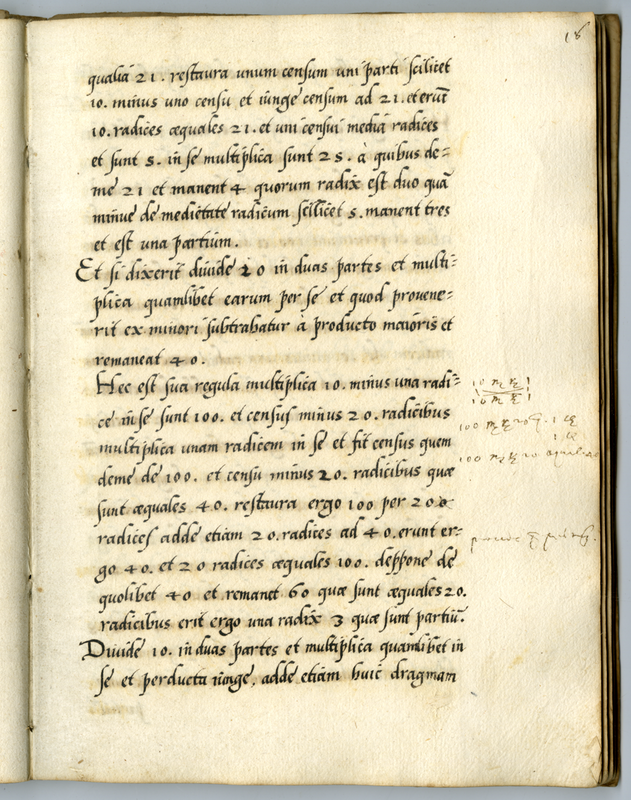 18
qualia 21. restaura unum censum uni parti scilicet
10. minus uno censu et iunge censum ad 21. et erũt
10. radices æquales 21. et uni censui mediã radices
et sunt 5. in se multiplica sunt 25. à quibus de=
me 21 et manent 4 quorum radix est duo quã
minue de medietate radicum scilicet 5. manent tres
et est una partium.
Et si dixerit diuide 10 in duas partes et multi=
plica quamlibet earum per se et quod prouene=
rit ex minori subtrahatur à producto maioris et
remaneat 40.
Hec est sua regula multiplica 10. minus una radi=
ce in se sunt 100. et census minus 20. radicibus
multiplica unam radicem in se et fit census quem
deme de 100. et censu minus 20. radicibus quæ
sunt æquales 40. restaura ergo 100 per 20
radices adde etiam 20. radices ad 40. erunt er=
go 40. et 20 radices æquales 100. deppone de
quolibet 40 et remanet 60 quæ sunt æquales 20.
radicibus erit ergo una radix 3 quæ sunt partiũ.
Diuide 10. in duas partes et multiplica quamlibet in
se et perducta iũge, adde etiam huic dragmam
10
10
100
100